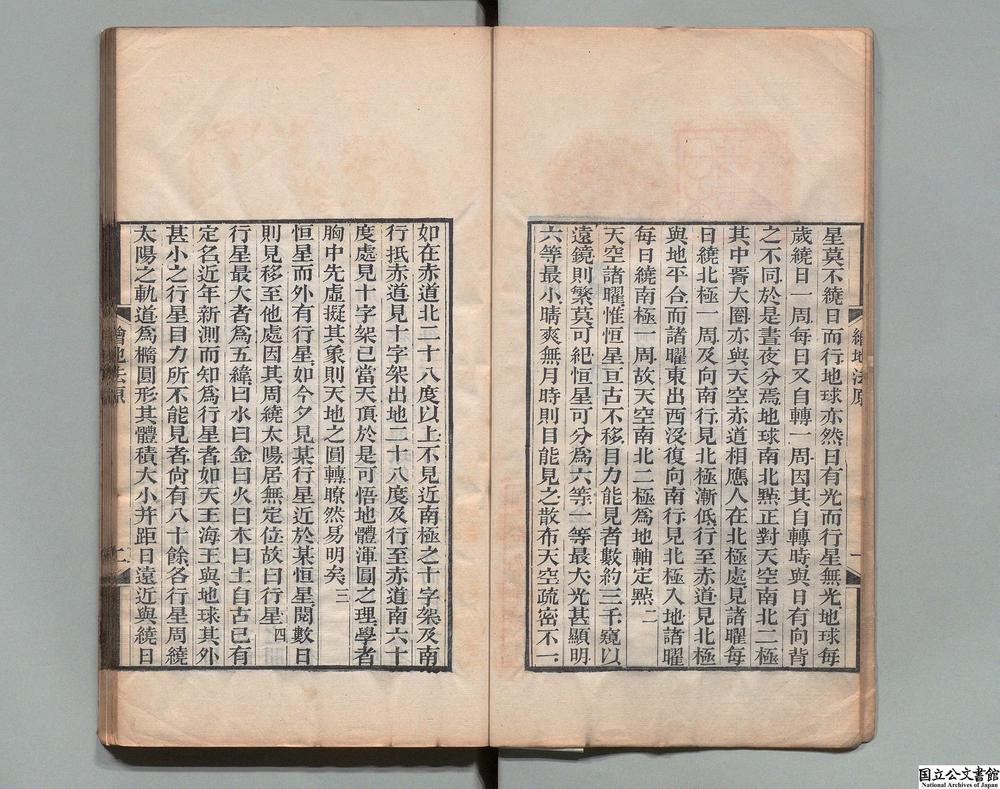 星莫不繞日而行地球亦然日有光而行星無光地球每
歲繞日一周每日又自轉一周因其自轉時與日有向背
之不同於是晝夜分焉地球南北點正對天空南北二極
其中腎大圈亦與天空赤道相應人在北極處見諸曜每
日繞北極一周及向南行見北極漸低行至赤道見北極
與地平合而諸曜東出西沒復向南行見北極入地諸曜
每日繞南極一周故天空南北二極為地軸定點二
天空諸曜惟恒星亘古不移目力能見者數約三千窺以
遠鏡則繁莫可紀恒星可分為六等一等最大光甚顯明
六等最小晴爽無月時則目能見之散布天空疏密不一
繪地法原
一
如在赤道北二十八度以上不見近南極之十字架及南
行抵赤道見十字架出地二十八度及行至赤道南六十
度處見十字架已當天頂於是可悟地體渾圓之理學者
胸中先虛擬其象則天地之圓轉瞭然易明矣三
恒星而外有行星如今夕見某行星近於某恒星閱數日
則見移至他處因其周繞太陽居無定位故曰行星四
行星最大者為五緯曰水曰金曰火曰木曰土自古已有
定名近年新測而知為行星者如天王海王與地球其外
甚小之行星目力所不能見者尙有八十餘各行星周繞
太陽之軌道為橢圓形其體積大小并距日遠近與繞日
繪地法原
国立公文書館
National Archives of Japan